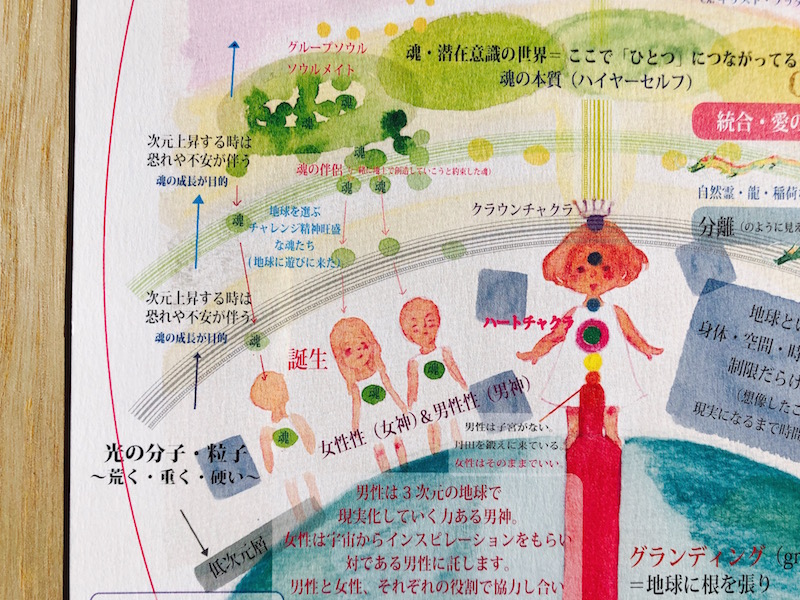 グループソウル
ソウルメイト
魂・潜在意識の世界＝ここで「ひとつ」につながってる
魂の本質（ハイヤーセルフ）
統合・愛の
次元上昇する時は
恐れや不安が伴う
魂の成長が目的
魂
魂の伴侶（一緒に地上で創造していこうと約束した魂）
魂
魂
魂
地球を選ぶ
チャレンジ精神旺盛
な魂たち
（地球に遊びに来た）
クラウンチャクラ
自然霊・龍・稲荷
分離（のように見え
次元上昇する時は
恐れや不安が伴う
魂の成長が目的
魂
誕生
ハートチャクラ
地球とい
身体・空間・時
制限だらけ
（想像したこ
現実になるまで時間
魂
魂
魂
女性性（女神）＆男性性（男神）
光の分子・粒子
〜荒く・重く・硬い〜
男性は子宮がない。
丹田を鍛えに来ている。
女性はそのままでいい。
低次元層
男性は３次元の地球で
現実化していく力ある男神。
女性は宇宙からインスピレーションをもらい
対である男性に託します。
男性と女性、それぞれの役割で協力し合い
グランディング（gr
＝地球に根を張り